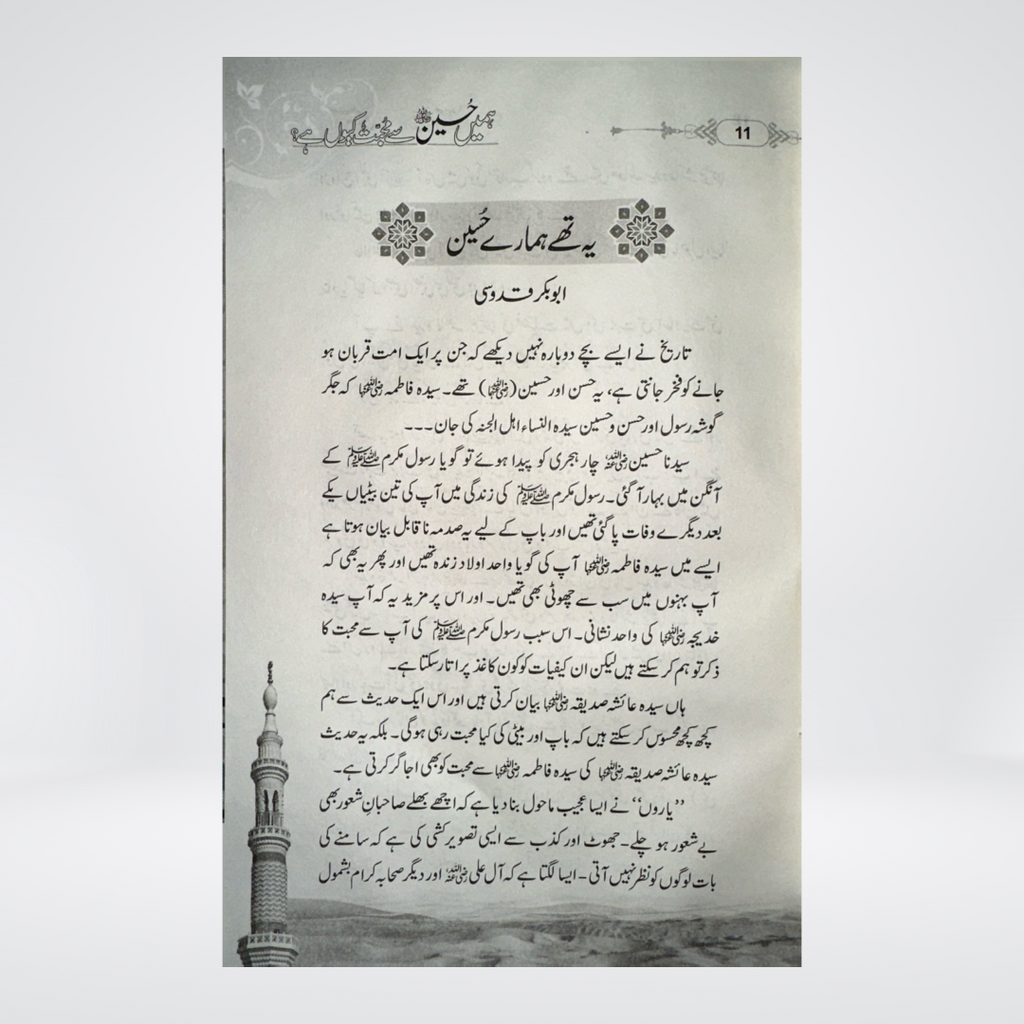 ہمیں حُسین رضی اللہ عنہ سے محبت کیوں ہے؟
11
یہ تھے ہمارے حُسین
ابوبکر قدوسی
تاریخ نے ایسے بچے دوبارہ نہیں دیکھے کہ جن پر ایک امت قربان ہو
جانے کو فخر جانتی ہے، یہ حسن اور حسین (رضی اللہ عنہما) تھے۔ سیدہ فاطمہ رضی اللہ عنہا کہ جگر
گوشہ رسول اور حسن و حسین سیدہ النساء اہل الجنہ کی جان۔۔۔
سیدنا حسین رضی اللہ عنہ چار ہجری کو پیدا ہوئے تو گویا رسول مکرم صلی اللہ علیہ وسلم کے
آنگن میں بہار آ گئی۔ رسول مکرم صلی اللہ علیہ وسلم کی زندگی میں آپ کی تین بیٹیاں یکے
بعد دیگرے وفات پا گئی تھیں اور باپ کے لیے یہ صدمہ ناقابل بیان ہوتا ہے
ایسے میں سیدہ فاطمہ رضی اللہ عنہا آپ کی گویا واحد اولاد زندہ تھیں اور پھر یہ بھی کہ
آپ بہنوں میں سب سے چھوٹی بھی تھیں۔ اور اس پر مزید یہ کہ آپ سیدہ
خدیجہ رضی اللہ عنہا کی واحد نشانی۔ اس سبب رسول مکرم صلی اللہ علیہ وسلم کی آپ سے محبت کا
ذکر تو ہم کر سکتے ہیں لیکن ان کیفیات کو کون کاغذ پر اتار سکتا ہے۔
ہاں سیدہ عائشہ صدیقہ رضی اللہ عنہا بیان کرتی ہیں اور اس ایک حدیث سے ہم
کچھ کچھ محسوس کر سکتے ہیں کہ باپ اور بیٹی کی کیا محبت رہی ہوگی۔ بلکہ یہ حدیث
سیدہ عائشہ صدیقہ رضی اللہ عنہا کی سیدہ فاطمہ رضی اللہ عنہا سے محبت کو بھی اجاگر کرتی ہے۔
”یاروں“ نے ایسا عجیب ماحول بنا دیا ہے کہ اچھے بھلے صاحبانِ شعور بھی
بے شعور ہو چلے۔ جھوٹ اور کذب سے ایسی تصویر کشی کی ہے کہ سامنے کی
بات لوگوں کو نظر نہیں آتی - ایسا لگتا ہے کہ آل علی رضی اللہ عنہ اور دیگر صحابہ کرام بشمول